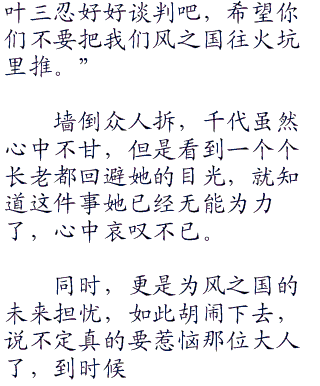 叶三忍好好谈判吧，希望你
们不要把我们风之国往火坑
里推。”
墙倒众人拆，千代虽然
心中不甘，但是看到一个个
长老都回避她的目光，就知
道这件事她已经无能为力
了，心中哀叹不已。
同时，更是为风之国的
未来担忧，如此胡闹下去，
说不定真的要惹恼那位大人
了，到时候